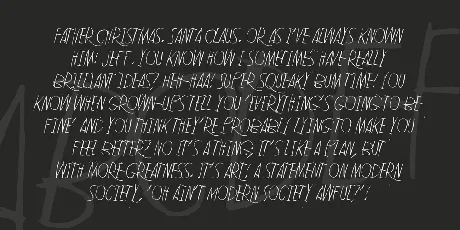 FATHER CHRISTMAS. SANTA CLAUS. OR AS I'VE ALWAYS KNOWN
HIM: JEFF. YOU KNOW HOW I SOMETIMES HAVE REALLY
BRILLIANT IDEAS? HEH-HAA! SUPER SQUEAKY BUM TIME! YOU
KNOW WHEN GROWN-UPS TELL YOU 'EVERYTHING'S GOING TO BE
FINE' AND YOU THINK THEY'RE PROBABLY LYING TO MAKE YOU
FEEL BETTER? NO IT'S A THING, IT'S LIKE A PLAN, BUT
WITH MORE GREATNESS. IT'S ART! A STATEMENT ON MODERN
SOCIETY, 'OH AIN'T MODERN SOCIETY AWFUL?'!